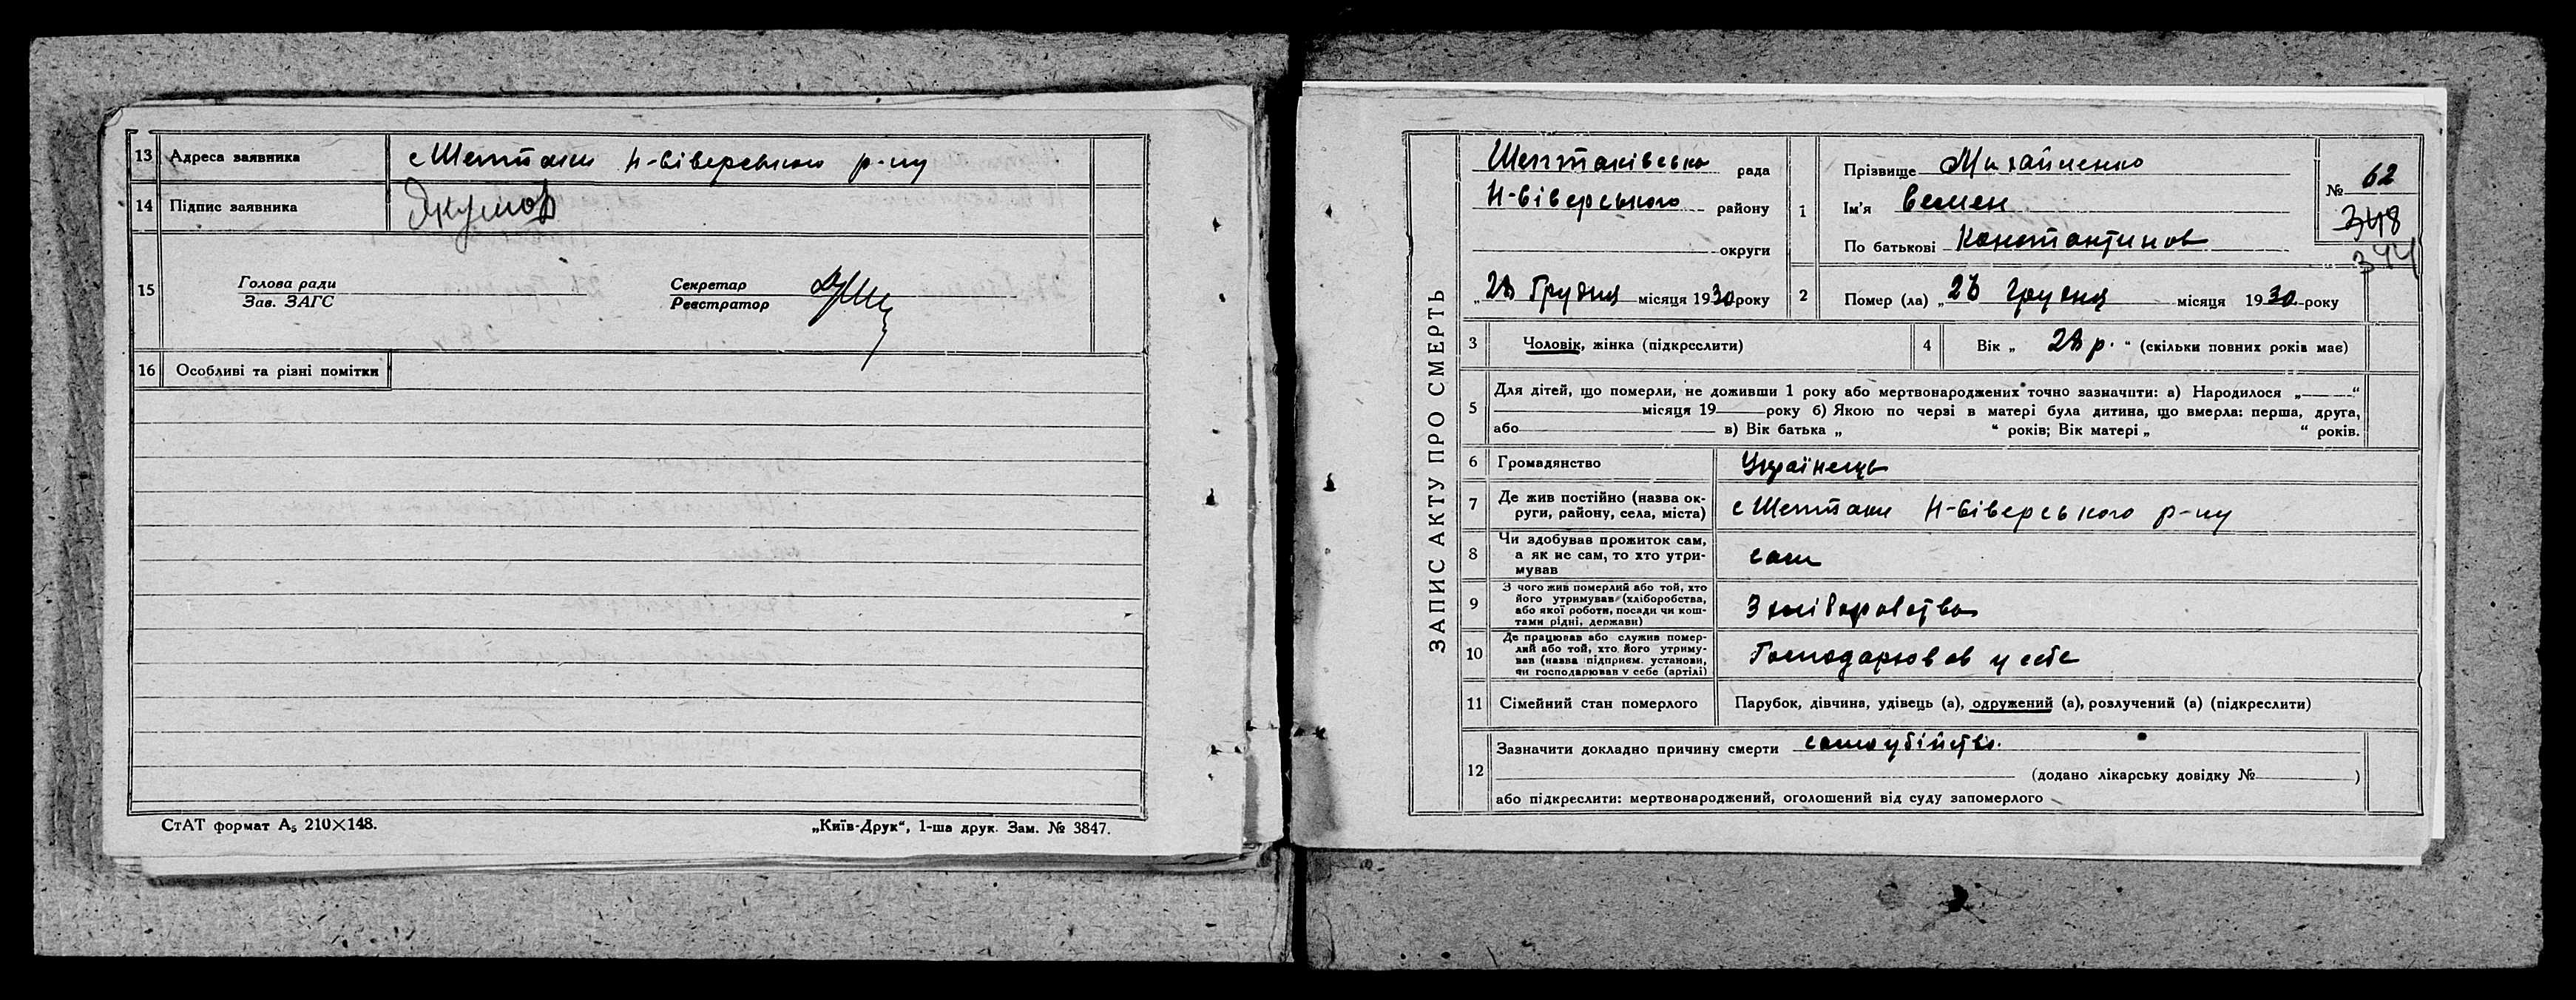 13 Адреса заявника с Шептаки Н-Сіверського р-ну
14 Підпис заявника
15 Голова ради
Зав. ЗАГС
Секретар
Реєстратор
16 Особливі та різні помітки
СтАТ формат А₅ 210×148.
„Київ-Друк“, 1-ша друк. Зам. № 3847.
ЗАПИС АКТУ ПРО СМЕРТЬ
Шептаківська рада
Н-Сіверського району
округи
„28 Грудня місяця 1930 року
1 Прізвище Михайленко
Ім'я Семен
По батькові Константинов
№ 62
348
344
2 Помер (ла) „ Грудня місяця 1930 року
3 Чоловік, жінка (підкреслити)
4 Вік „ 28 р. “ (скільки повних років має)
5 Для дітей, що померли, не доживши 1 року або мертвонароджених точно зазначити: а) Народилося „ “
місяця 19 року б) Якою по черзі в матері була дитина, що вмерла: перша, друга,
або в) Вік батька „ “ років; Вік матері „ “ років.
6 Громадянство Українець
7 Де жив постійно (назва ок-
руги, району, села, міста) с Шептаки Н-Сіверського р-ну
8 Чи здобував прожиток сам,
а як не сам, то хто утри-
мував сам
9 З чого жив померлий або той, хто
його утримував (хліборобства,
або якої роботи, посади чи кош-
тами рідні, держави) З хліборобства
10 Де працював або служив помер-
лий або той, хто його утриму-
вав (назва підприєм. установи,
чи господарював у себе (артілі) Господарював у себе
11 Сімейний стан померлого Парубок, дівчина, удівець (а), одружений (а), розлучений (а) (підкреслити)
12 Зазначити докладно причину смерти самоубійство.
(додано лікарську довідку № )
або підкреслити: мертвонароджений, оголошений від суду запомерлого